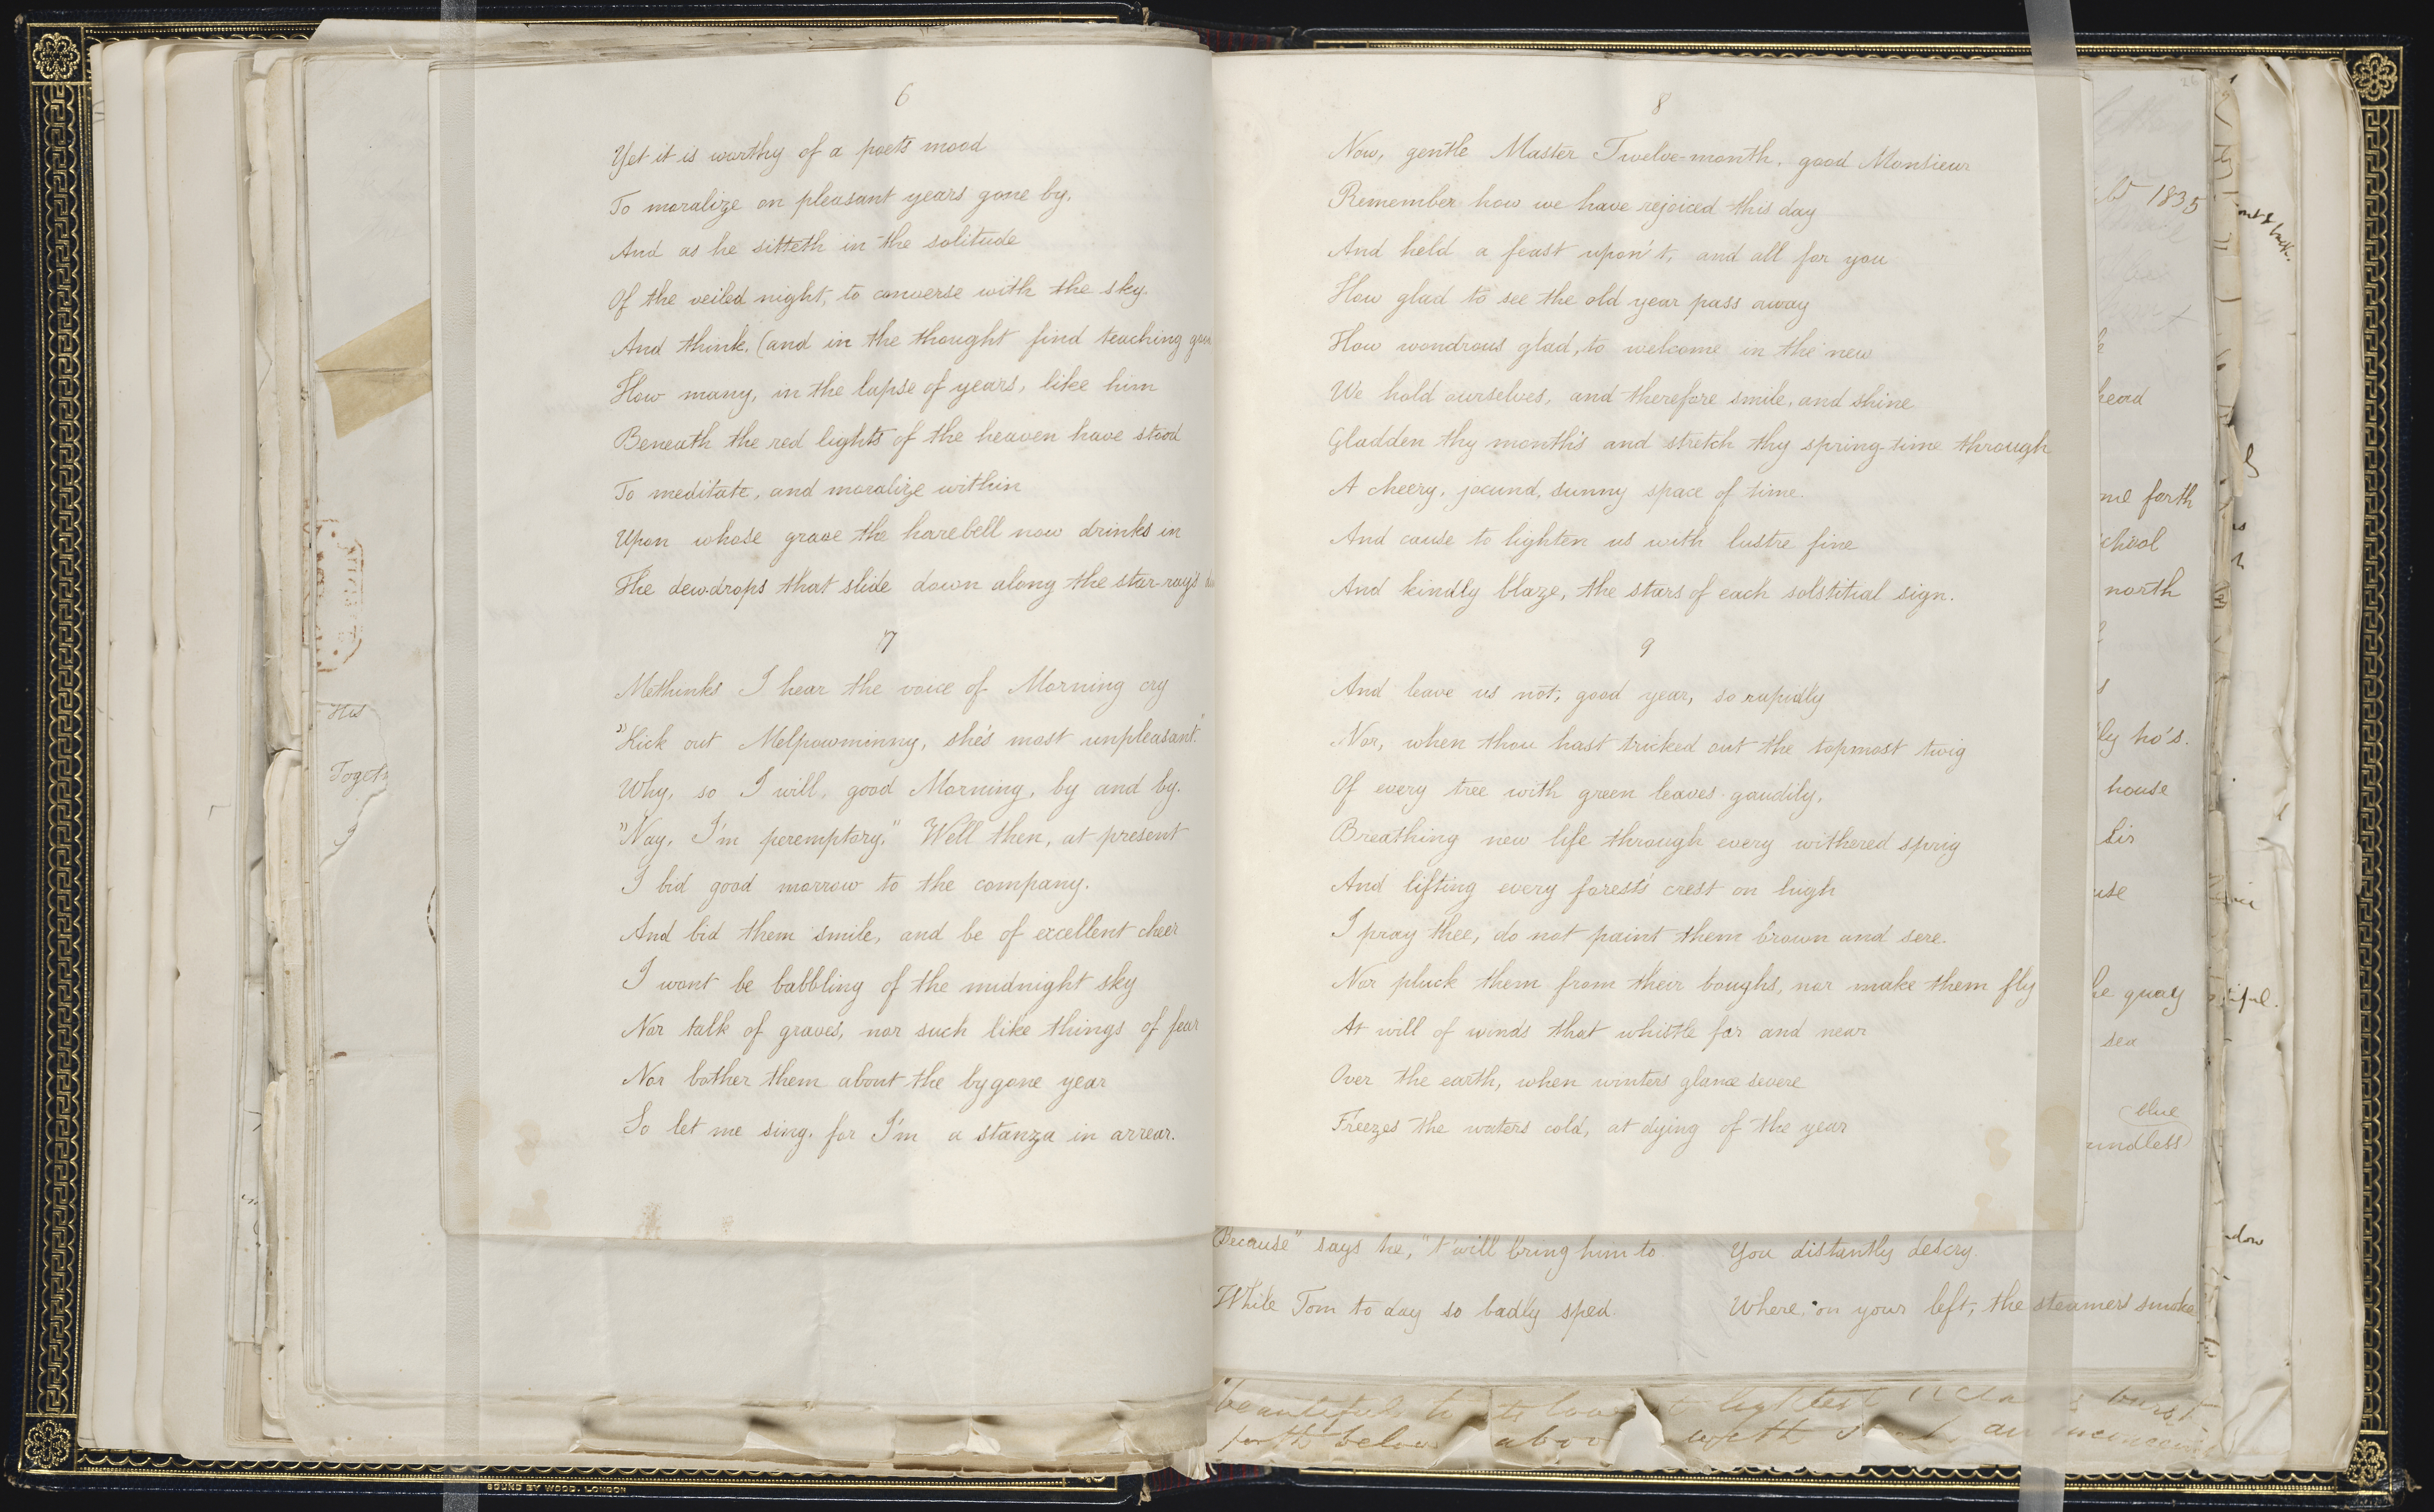 6
Yet it is worthy of a poets mood
To moralize on pleasant years gone by,
And as he sitteth in the solitude
Of the veiled night, to converse with the sky.
And think, (and in the thought find teaching
How many, in the lapse of years, like him
Beneath the red lights of the heaven have stood
To meditate, and moralize within
Upon whose grave the harebell now drinks in
The dewdrops that slide down along the star-ray's
7
Methinks I hear the voice of Morning cry
"Kick out Melpowminny, she's most unpleasant."
Why, so I will, good Morning, by and by.
"Nay, I'm peremptory," Well then, at present
I bid good morrow to the company.
And bid them smile, and be of excellent cheer
I wont be babbling of the midnight sky
Nor talk of graves, nor such like things of fear
Nor bother them about the bygone year
So let me sing, for I'm a stanza in arrear.
8
Now, gentle Master Twelve-month, good Monsieur
Remember how we have rejoiced this day
And held a feast upon't, and all for you
How glad to see the old year pass away
How wondrous glad, to welcome in the new
We hold ourselves, and therefore smile, and shine
Gladden thy month's and stretch thy spring-time through
A cheery, jocund, sunny space of time.
And cause to lighten us with lustre fine
And kindly blaze, the stars of each solstitial sign.
9
And leave us not, good year, so rapidly
Nor, when thou hast tricked out the topmost twig
Of every tree with green leaves gaudily,
Breathing new life through every withered sprig
And lifting every forest's crest on high
I pray thee, do not paint them brown and sere.
Nor pluck them from their boughs, nor make them fly
At will of winds that whistle far and near
Over the earth, when winters glance severe
Freezes the waters cold, at dying of the year
Because" says he, "t'will bring him to.
While Tom to day so badly sped.
You distantly descry.
Where, on your left, the steamers smoke
26
1835
heard
me forth
north
ly ho's.
house
he quay
sea
blue
undless
BOUND BY WOOD. LONDON